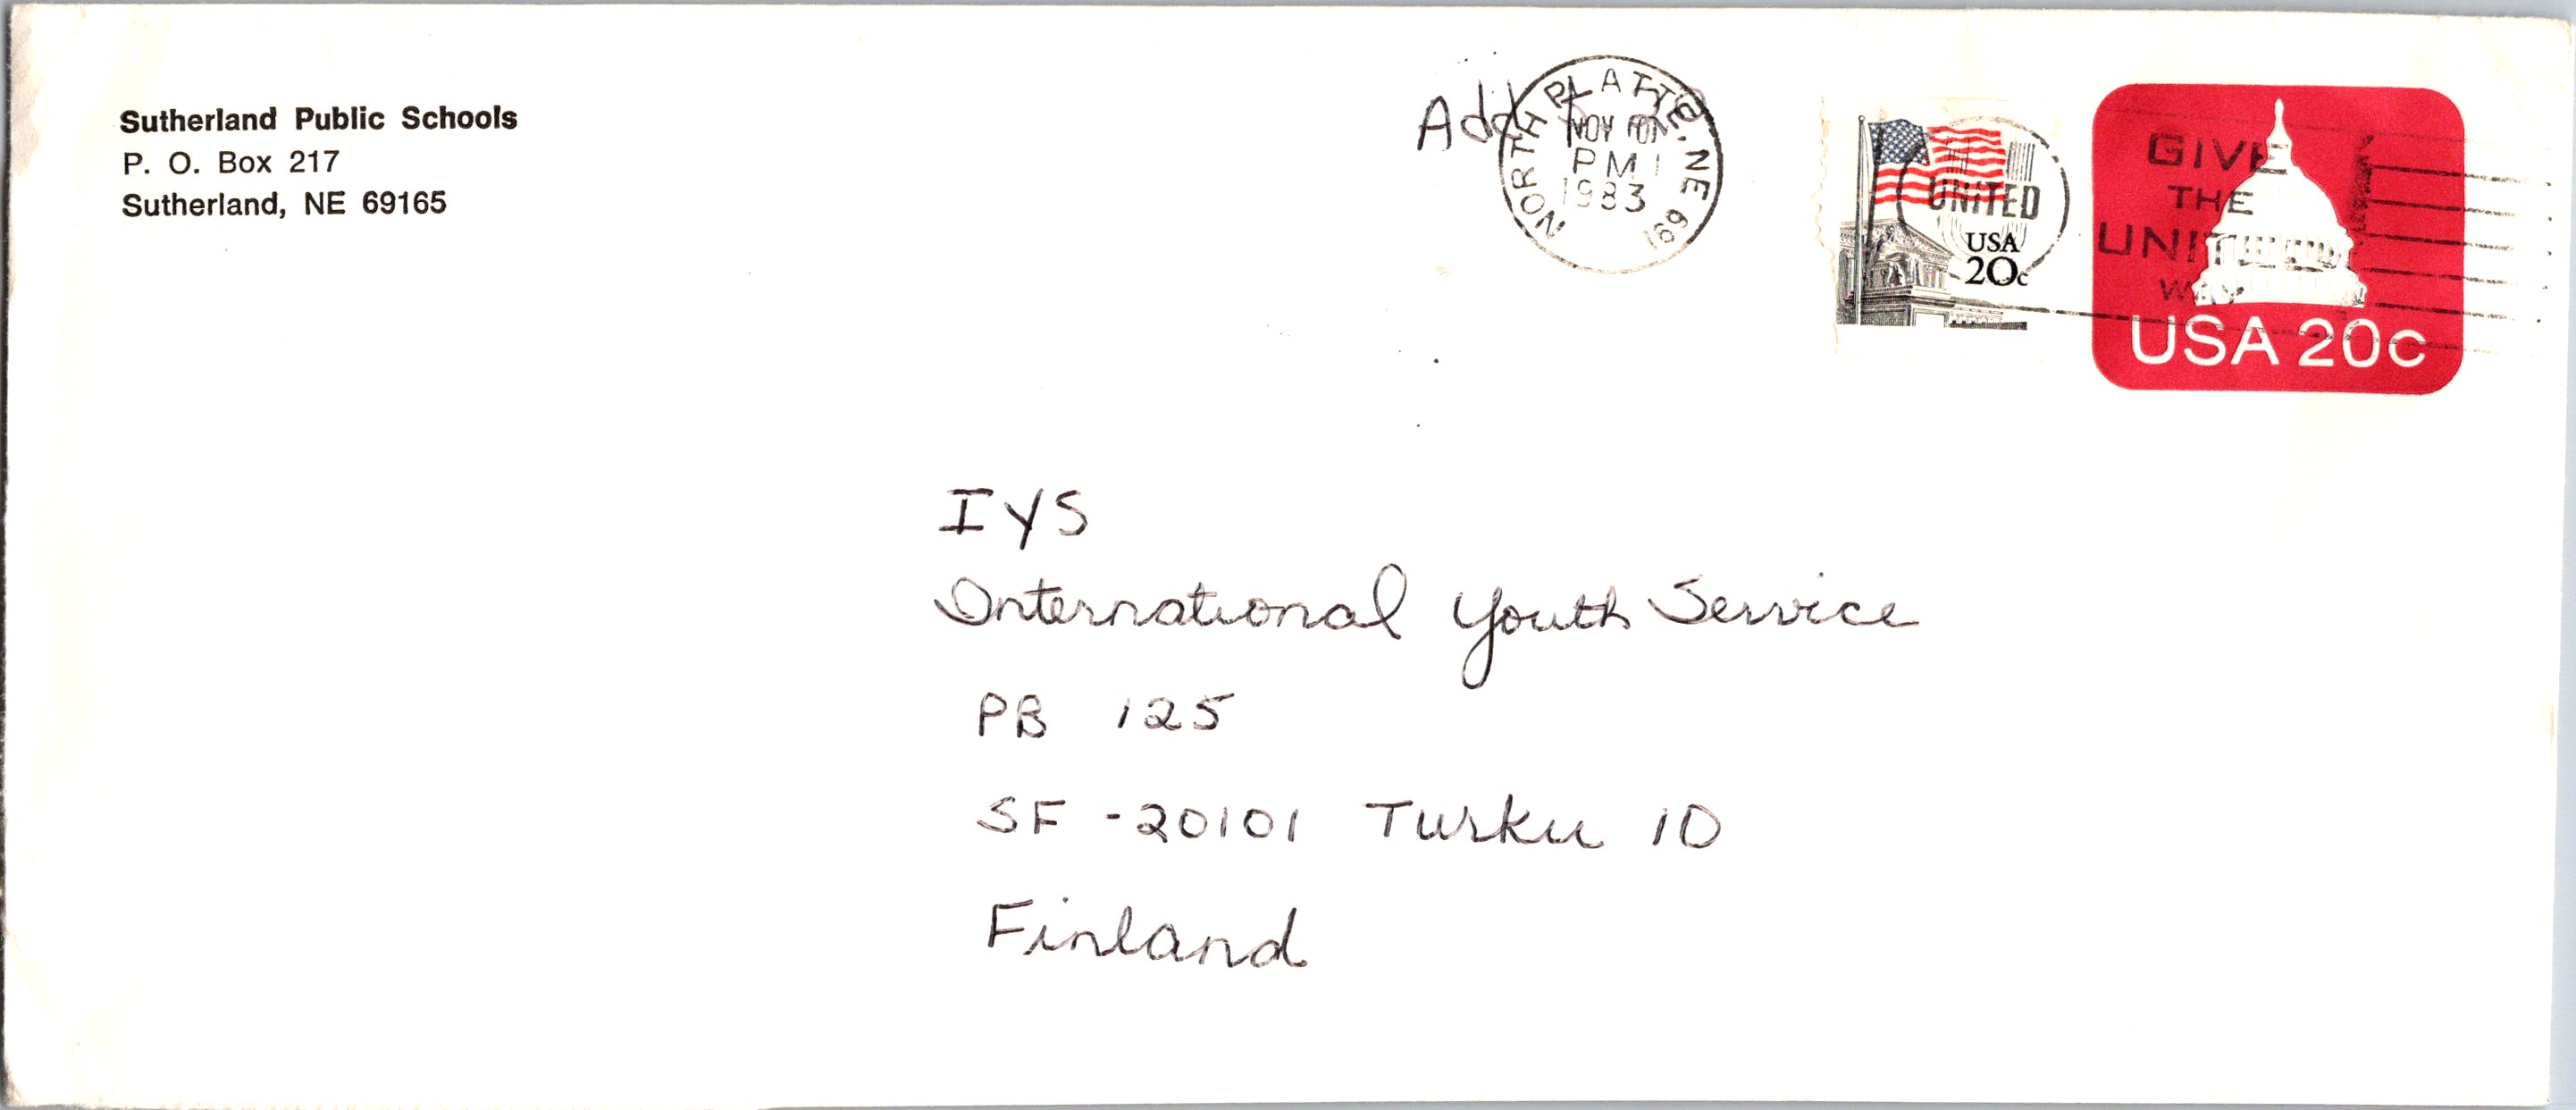 Sutherland Public Schools
P. O. Box 217
Sutherland, NE 69165
Add
NORTH PLATTE, NE 691
NOV
PM
1983
UNITED
USA
20c
GIVE
THE
UNITED
WAY
USA 20c
IYS
International Youth Service
PB 125
SF -20101 Turku 10
Finland